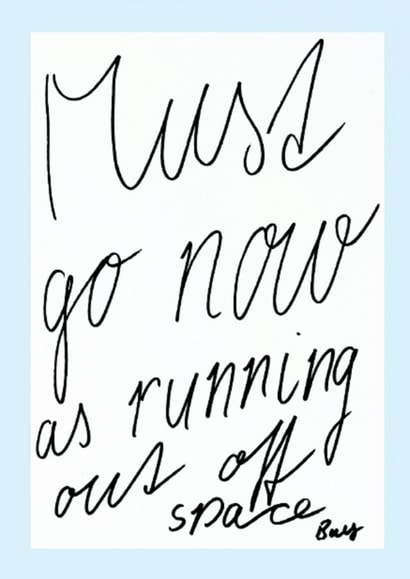 Must
go now
as running
out off
space
Buy